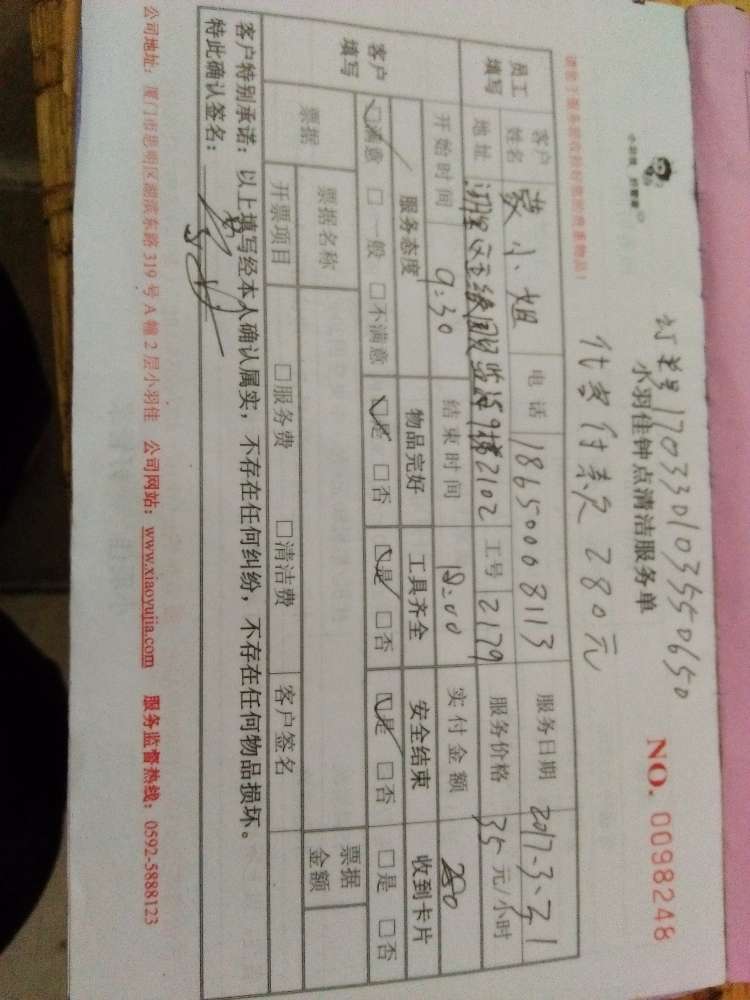 请您于服务前收拾好您的贵重物品！
订单号17033010355 0650
小羽佳钟点清洁服务单
NO. 0098248
代写付款 280元
员工填写 客户姓名 黄小姐 电话 18650008113 服务日期 2017.3.31
地址 9楼2102 工号 2179 服务价格 35元/小时
客户填写 开始时间 9:30 结束时间 18:00 实付金额 280
服务态度 物品完好 工具齐全 安全结束 收到卡片
☑满意 □一般 □不满意 ☑是 □否 ☑是 □否 ☑是 □否 □是 □否
票据 票据名称 票据金额
开票项目 □服务费 □清洁费 客户签名
客户特别承诺：以上填写经本人确认属实，不存在任何纠纷，不存在任何物品损坏。
特此确认签名：
公司地址：厦门市思明区湖滨东路319号A幢2层小羽佳 公司网站：www.xiaoyujia.com 服务监督热线：0592-5888123